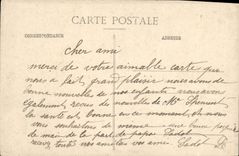 CARTE POSTALE
CORRESPONDANCE
ADRESSE
Cher ami
merci de votre aimable carte que
nous a fait grand plaisir nous avons de
bonne nouvelle de nos enfants
également reçus de nouvelles de Mr
la santé est bonne en ce moment, on nous
vous souhaitons de meme bonne
de main de la part de papa Tadot
recevez tous nos amitiés vos amis Tadot